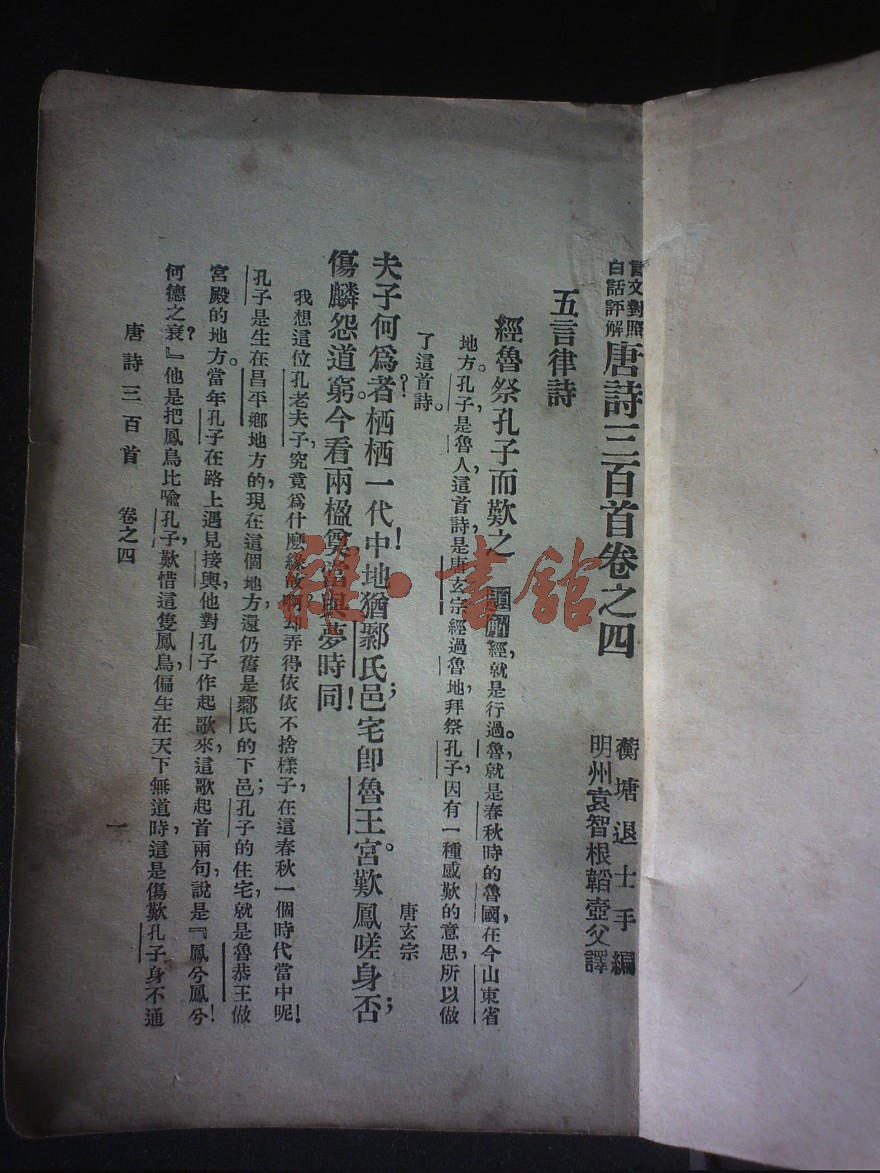 言文對照
白話評解
唐詩三百首卷之四
蘅塘退士手編
明州袁智根韜壺父譯
五言律詩
經魯祭孔子而歎之 題解 經,就是行過。魯,就是春秋時的魯國,在今山東省
地方。孔子,是魯人,這首詩是唐玄宗經過魯地,拜祭孔子,因有一種感歎的意思,所以做
了這首詩。
唐玄宗
夫子何爲者?栖栖一代中!地猶鄹氏邑;宅卽魯王宮。歎鳳嗟身否;
傷麟怨道窮。今看兩楹奠,當與夢時同!
我想這位孔老夫子,究竟爲什麼緣故啊?却弄得依依不捨樣子,在這春秋一個時代當中呢!
孔子是生在昌平鄉地方的,現在這個地方還仍舊是鄹氏的下邑;孔子的住宅,就是魯恭王做
宮殿的地方。當年孔子在路上遇見接輿,他對孔子作起歌來,這歌起首兩句,說是『鳳兮鳳兮!
何德之衰?』他是把鳳鳥比喩孔子,歎惜這隻鳳鳥,偏生在天下無道時,這是傷歎孔子身不通
唐詩三百首 卷之四
一
雅·書館